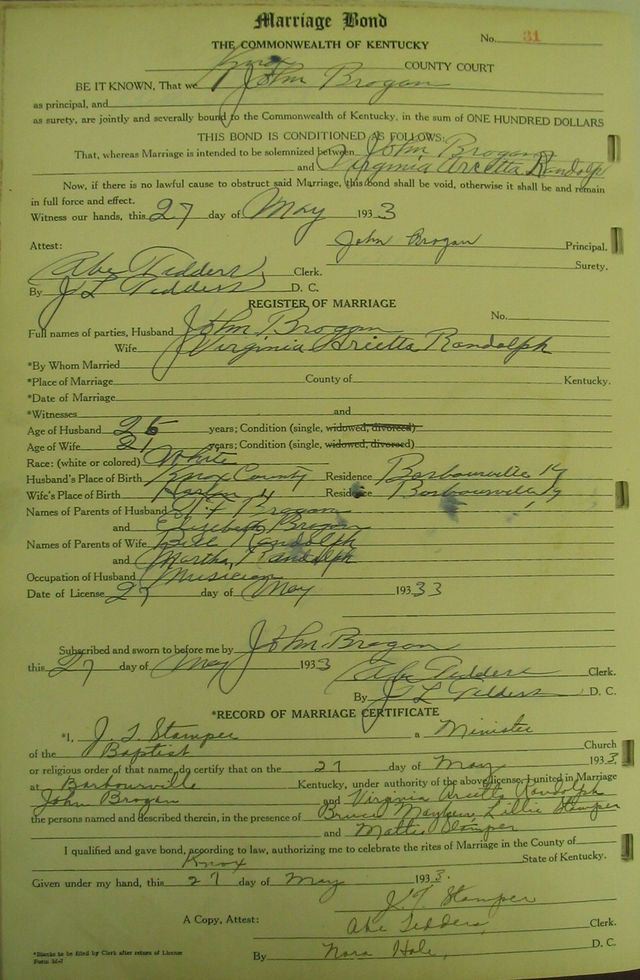 Marriage Bond
THE COMMONWEALTH OF KENTUCKY
No. 31
Knox COUNTY COURT
BE IT KNOWN, That we John Brogan
as principal, and
as surety, are jointly and severally bound to the Commonwealth of Kentucky, in the sum of ONE HUNDRED DOLLARS
THIS BOND IS CONDITIONED AS FOLLOWS:
That, whereas Marriage is intended to be solemnized between John Brogan
and Virginia Arietta Randolph
Now, if there is no lawful cause to obstruct said Marriage, this bond shall be void, otherwise it shall be and remain
in full force and effect.
Witness our hands, this 27 day of May 1933
John Brogan Principal.
Attest:
Surety.
Abe Tedders Clerk.
By J L Tedders D. C.
REGISTER OF MARRIAGE
No.
Full names of parties, Husband John Brogan
Wife Virginia Arietta Randolph
*By Whom Married
*Place of Marriage County of Kentucky.
*Date of Marriage
*Witnesses and
Age of Husband 26 years; Condition (single, widowed, divorced)
Age of Wife 21 years; Condition (single, widowed, divorced)
Race: (white or colored) White
Husband's Place of Birth Knox County Residence Barbourville Ky
Wife's Place of Birth Harlan Residence Barbourville Ky
Names of Parents of Husband Brogan
and Elizabeth Brogan
Names of Parents of Wife Bill Randolph
and Martha Randolph
Occupation of Husband Musician
Date of License 27 day of May 19333
Subscribed and sworn to before me by John Brogan
this 27 day of May 1933
Abe Tedders Clerk.
By J L Tedders D. C.
*RECORD OF MARRIAGE CERTIFICATE
*I, J. T. Stamper a Minister
of the Baptist Church
or religious order of that name, do certify that on the 27 day of May 1933.
at Barbourville Kentucky, under authority of the above license, I united in Marriage
John Brogan and Virginia Arietta Randolph
the persons named and described therein, in the presence of Bruce Mayhew, Lillie Stamper
and Mattie Stamper
I qualified and gave bond, according to law, authorizing me to celebrate the rites of Marriage in the County of
Knox State of Kentucky.
Given under my hand, this 27 day of May 1933.
J. T. Stamper
A Copy, Attest: Abe Tedders, Clerk.
*Blanks to be filed by Clerk after return of License
By Nora Hale, D. C.